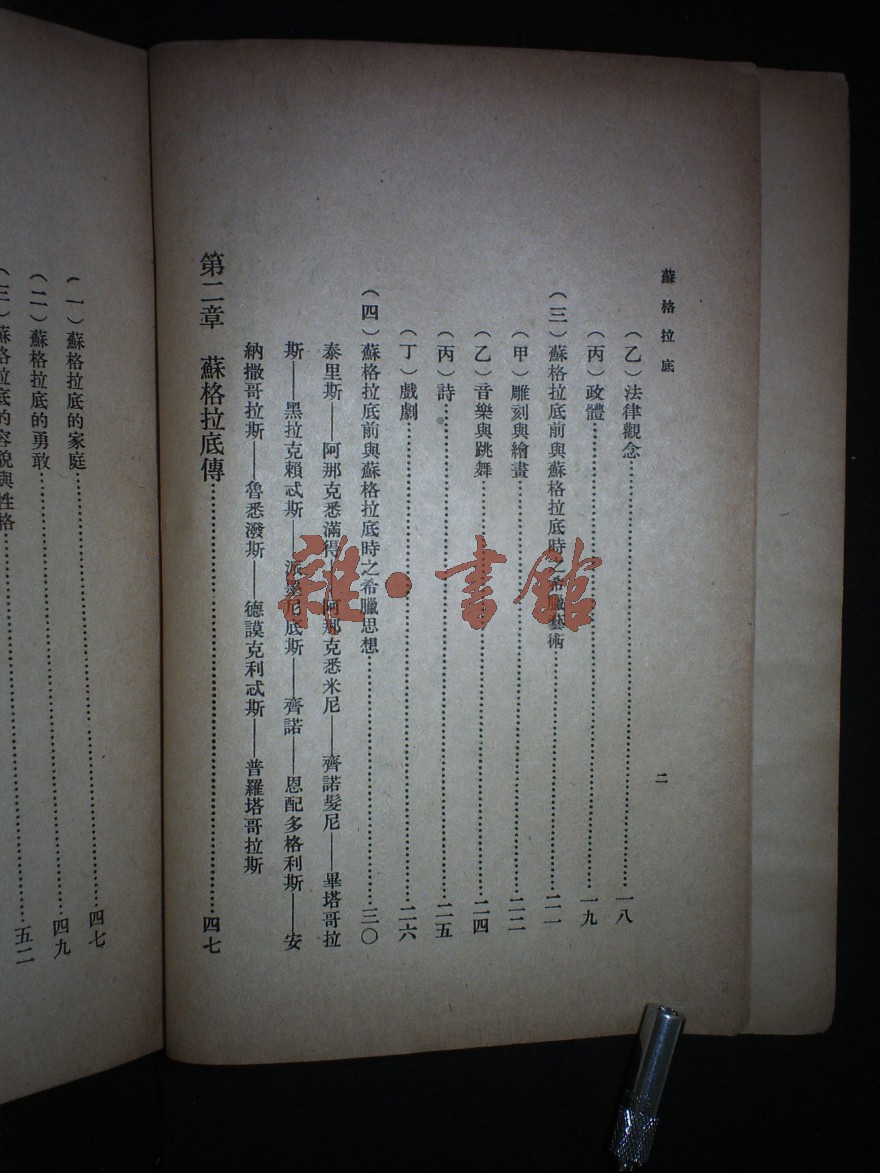 蘇格拉底
二
（乙）法律觀念………一八
（丙）政體………一九
（三）蘇格拉底前與蘇格拉底時之希臘藝術………二一
（甲）雕刻與繪畫………二二
（乙）音樂與跳舞………二四
（丙）詩………二五
（丁）戲劇………二六
（四）蘇格拉底前與蘇格拉底時之希臘思想………三〇
泰里斯——阿那克悉滿得——阿那克悉米尼——齊諾髮尼——畢塔哥拉
斯——黑拉克賴忒斯——派墨尼底斯——齊諾——恩配多格利斯——安
納撒哥拉斯——魯悉潑斯——德謨克利忒斯——普羅塔哥拉斯
第二章　蘇格拉底傳………四七
（一）蘇格拉底的家庭………四七
（二）蘇格拉底的勇敢………四九
（三）蘇格拉底的容貌與性格………五二
雜·書館